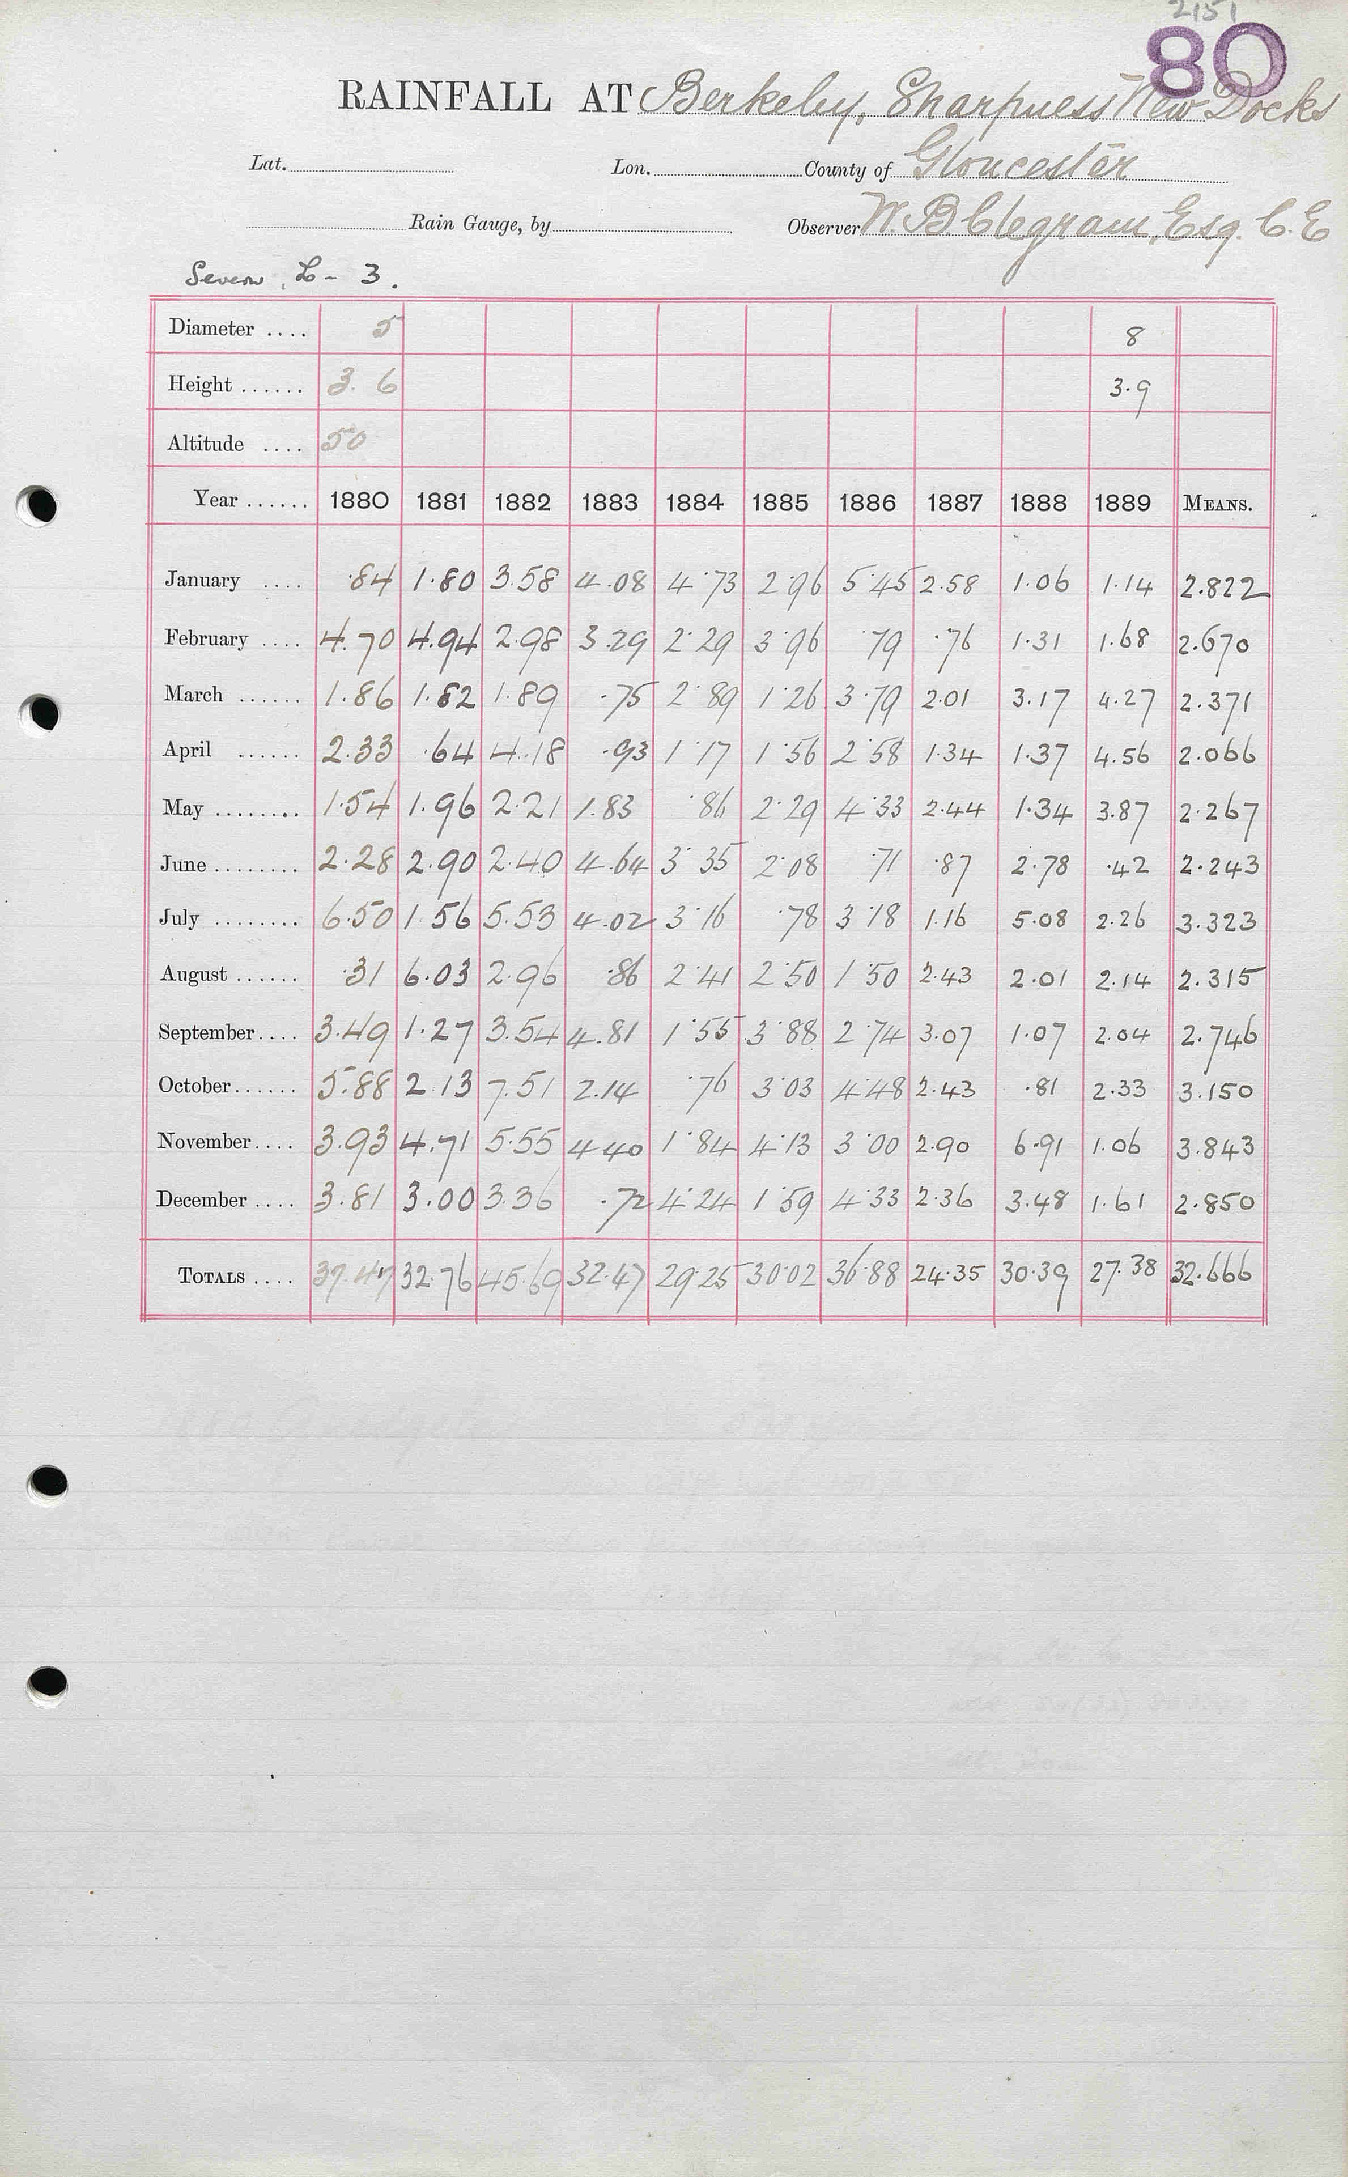 2151
80
RAINFALL AT Berkeley, Sharpness New Docks
Lat. Lon. County of Gloucester
Rain Gauge, by Observer W. B. Clegram, Esq. C. E
Severn, L - 3.
Diameter .... 5 8
Height ...... 3. 6 3.9
Altitude .... 50
Year ...... 1880 1881 1882 1883 1884 1885 1886 1887 1888 1889 MEANS.
January .... .84 1.80 3.58 4.08 4.73 2.96 5.45 2.58 1.06 1.14 2.822
February .... 4.70 4.94 2.98 3.29 2.29 3.96 .79 .76 1.31 1.68 2.670
March ...... 1.86 1.82 1.89 .75 2.89 1.26 3.79 2.01 3.17 4.27 2.371
April ...... 2.33 .64 4.18 .93 1.17 1.56 2.58 1.34 1.37 4.56 2.066
May ........ 1.54 1.96 2.21 1.83 .86 2.29 4.33 2.44 1.34 3.87 2.267
June ........ 2.28 2.90 2.40 4.64 3.35 2.08 .71 .87 2.78 .42 2.243
July ........ 6.50 1.56 5.53 4.02 3.16 .78 3.18 1.16 5.08 2.26 3.323
August ...... .31 6.03 2.96 .86 2.41 2.50 1.50 2.43 2.01 2.14 2.315
September .... 3.49 1.27 3.54 4.81 1.55 3.88 2.74 3.07 1.07 2.04 2.746
October ...... 5.88 2.13 7.51 2.14 .76 3.03 4.48 2.43 .81 2.33 3.150
November .... 3.93 4.71 5.55 4.40 1.84 4.13 3.00 2.90 6.91 1.06 3.843
December .... 3.81 3.00 3.36 .72 4.24 1.59 4.33 2.36 3.48 1.61 2.850
TOTALS .... 37.47 32.76 45.69 32.47 29.25 30.02 36.88 24.35 30.39 27.38 32.666